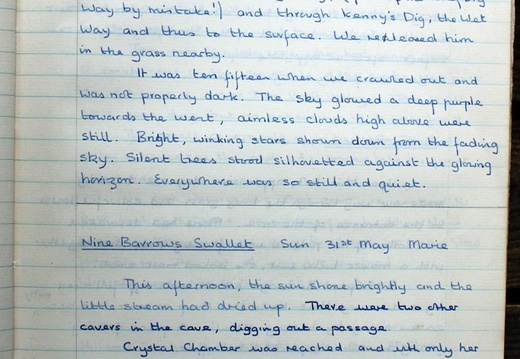 way by mistake!) and through Kenny's Dig, the Wet
Way and thus to the surface. We released him
in the grass nearby.
It was ten fifteen when we crawled out and
was not properly dark. The sky glowed a deep purple
towards the went, aimless clouds high above were
still. Bright, winking stars shown down from the fading
sky. Silent trees stood silhovetted against the glowing
horizon. Everywhere was so still and quiet.
Nine Barrows Swallet Sun 31st May Marie
This afternoon, the sun shone brightly and the
little stream had dried up. There were two other
cavers in the cave, digging out a passage.
Crystal Chamber was reached and with only her